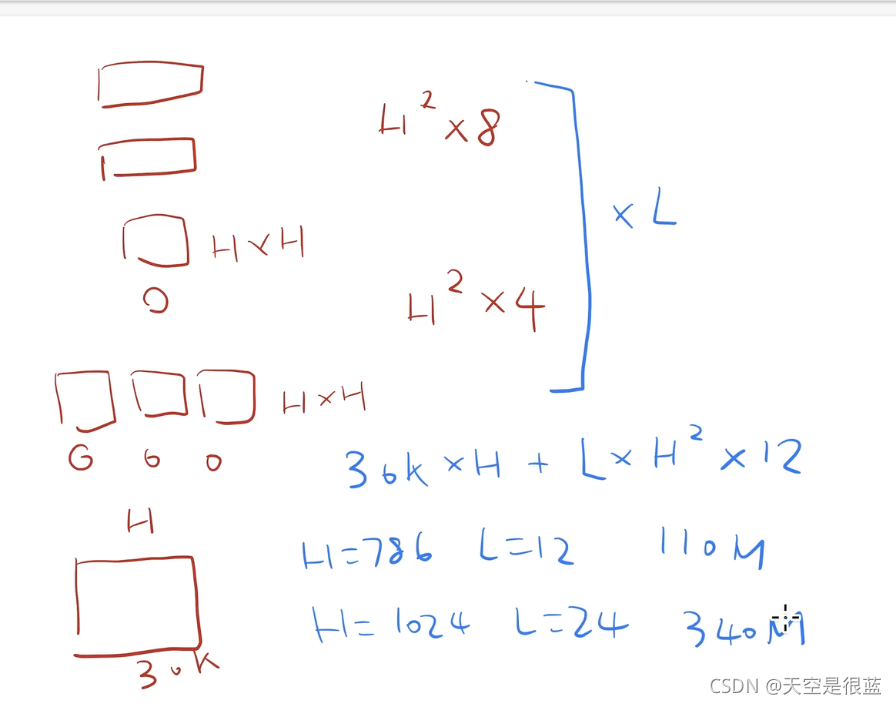 H² × 8
× L
H × H
O
H² × 4
H × H
O O O
30k × H + L × H² × 12
H
H=786 L=12 110M
H=1024 L=24 340M
30k
CSDN @天空是很蓝